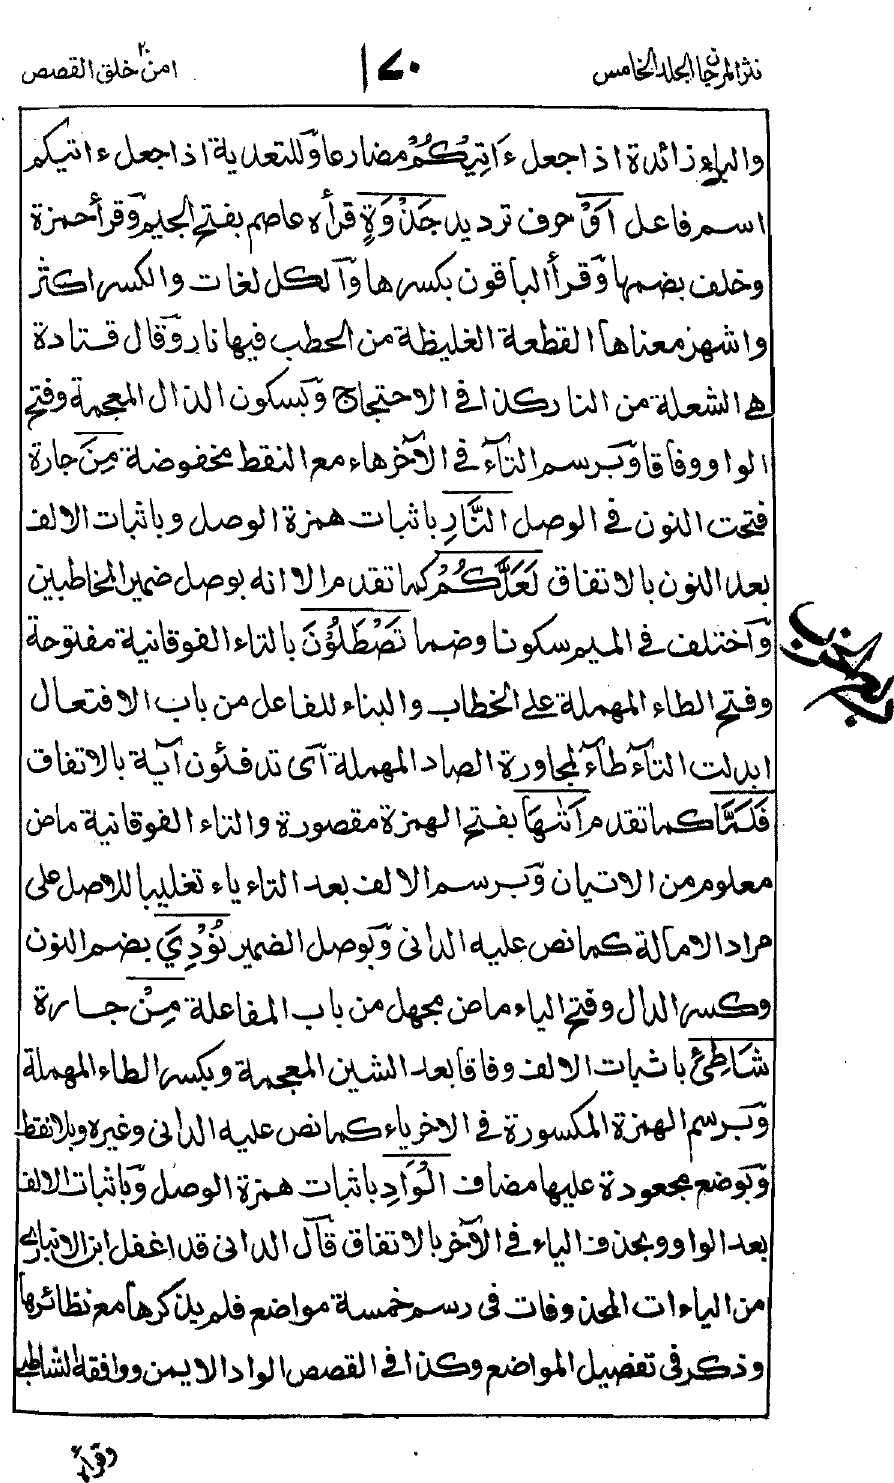 نثر المرجان الجلد الخامس
١٧٠
امن خلق ٢٠ القصص
والباء زائدة اذا جعل ءَاتِيكُمْ مضارعا وللتعدية اذا جعل ءاتيكم
اسم فاعل اَوْ حرف ترديد جَذْوَةٍ قرأه عاصم بفتح الجيم وقرأ حمزة
وخلف بضمها وقرأ الباقون بكسرها وآلكل لغات والكسر اكثر
واشهر معناها القطعة الغليظة من الحطب فيها نار وقال قتادة
هے الشعلة من النار كذا فے الاحتجاج وبسكون الذال المعجمة وفتح
الواو وفاقا وبرسم التآء فے الآخرهاء مع النقط مخفوضة مِنَ جارة
فتحت النون فے الوصل النَّارِ باثبات همزة الوصل وباثبات الالف
بعد النون بالاتفاق لَعَلَّكُمْ كما تقدم الا انه بوصل ضمير المخاطبين
وآختلف فے الميم سكونا وضما تَصْطَلُوْنَ بالتاء الفوقانية مفتوحة
وفتح الطاء المهملة علے الخطاب والبناء للفاعل من باب الافتعال
ابدلت التآء طآء لمجاورة الصاد المهملة آى تدفئون آية بالاتفاق
فَلَمَّا كما تقدم اَتٰىهَا بفتح الهمزة مقصورة والتاء الفوقانية ماض
معلوم من الاتيان وبرسم الالف بعد التاء ياء تغليبا للاصل على
مراد الامالة كما نص عليه الدانى وبوصل الضمير نُوْدِيَ بضم النون
وكسر الدال وفتح الياء ماض مجهل من باب المفاعلة مِنْ جارة
شَاطِئِ باثبات الالف وفاقا بعد الشين المعجمة وبكسر الطاء المهملة
وبرسم الهمزة المكسورة فے الاخرياء كما نص عليه الدانى وغيره وبلا نقط
وبوضع مجعودة عليها مضاف الْوَادِ باثبات همزة الوصل وباثبات الالف
بعد الواو وبحذف الياء فے الآخر بالاتفاق قآل الدانى قد اغفل ابن الانبارى
من الياءات المحذوفات فى رسم خمسة مواضع فلم يذكرها مع نظائرها
وذكر فى تفصيل المواضع وكذا فے القصص الواد الايمن ووافقه الشاطبى
وقرأه